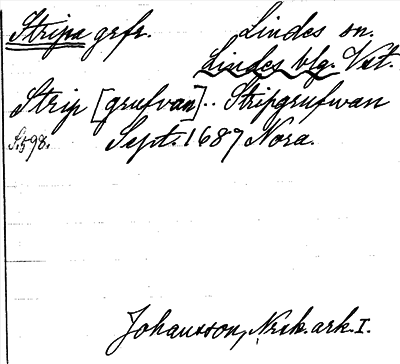 Stripa grfr. Lindes sn.
Lindes blg. Vstm.
Strip [grufvan].. Stripgrufwan
S. 598. Sept. 1687 Nora.
Johansson, Nrsk. ark. I.